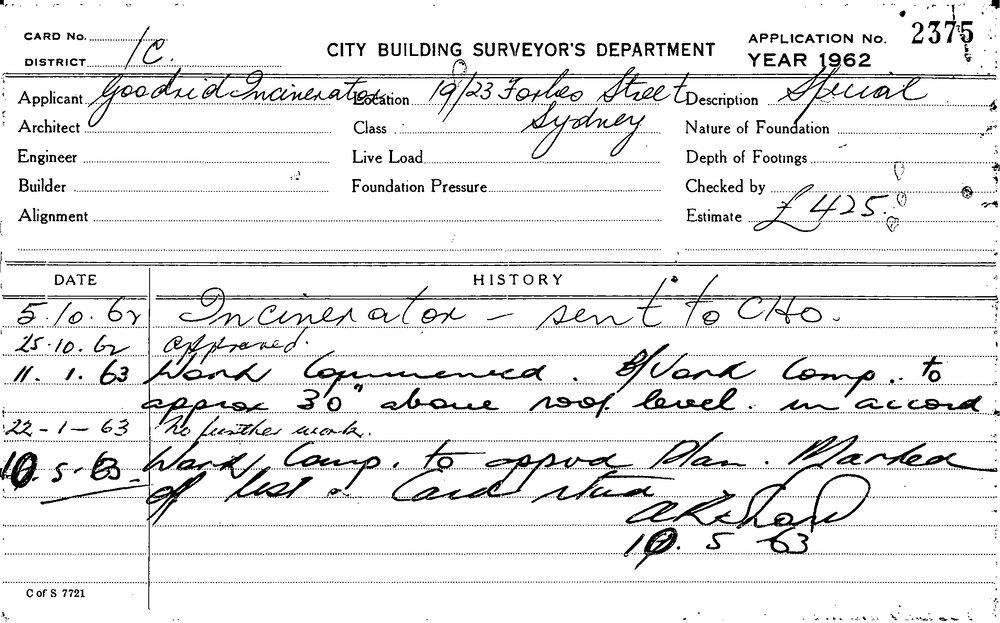 CARD No.
DISTRICT 1C.
CITY BUILDING SURVEYOR'S DEPARTMENT
APPLICATION No. 2375
YEAR 1962
Applicant Goodrid Incinerator Location 19/23 Forbes Street Description Special
Architect Class Sydney Nature of Foundation
Engineer Live Load Depth of Footings
Builder Foundation Pressure Checked by
Alignment Estimate £425.
DATE HISTORY
5.10.62 Incinerator - sent to CHO.
25.10.62 approved.
11.1.63 Work Commenced. B/Work Comp. to
approx 30" above roof level. in accord
22-1-63 no further work.
10.5.63- Work Comp. to appvd Plan. Marked
off list &amp; Card rtnd
10.5 63
C of S 7721